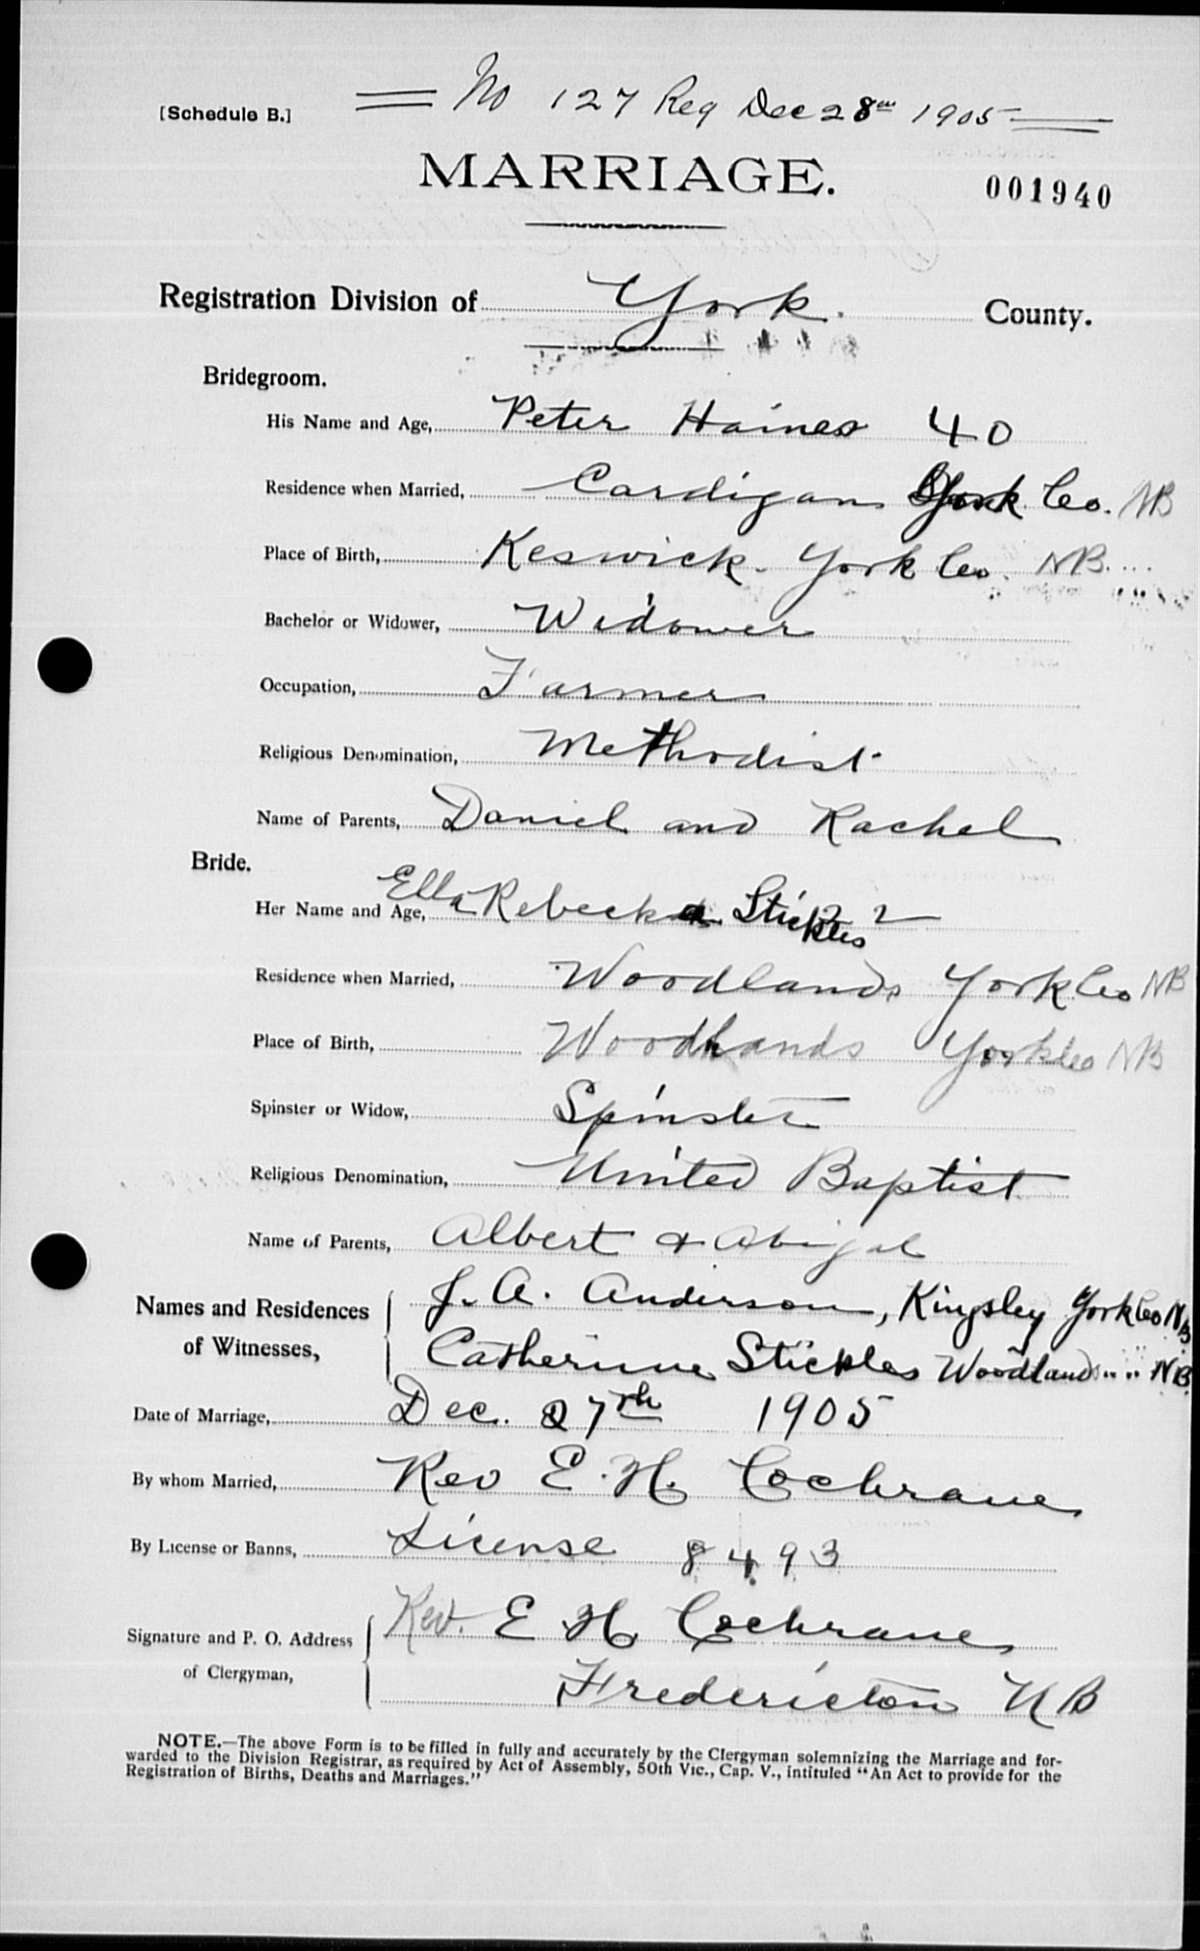 [Schedule B.]
No 127 Reg Dec 28th 1905
MARRIAGE.
001940
Registration Division of York County.
Bridegroom.
His Name and Age, Peter Haines 40
Residence when Married, Cardigan York Co. NB
Place of Birth, Keswick York Co. NB.
Bachelor or Widower, Widower
Occupation, Farmer
Religious Denomination, Methodist
Name of Parents, Daniel and Rachel
Bride.
Her Name and Age, Ella Rebecka Stickles 22
Residence when Married, Woodlands York Co NB
Place of Birth, Woodlands York Co NB
Spinster or Widow, Spinster
Religious Denomination, United Baptist
Name of Parents, Albert & Abigal
Names and Residences of Witnesses, J. A. Anderson, Kingsley York Co NB
Catherine Stickles Woodlands " " NB
Date of Marriage, Dec. 27th 1905
By whom Married, Rev E. H. Cochrane
By License or Banns, License 8493
Signature and P. O. Address of Clergyman, Rev. E H Cochrane
Fredericton NB
NOTE.—The above Form is to be filled in fully and accurately by the Clergyman solemnizing the Marriage and for-
warded to the Division Registrar, as required by Act of Assembly, 50th Vic., Cap. V., intituled "An Act to provide for the
Registration of Births, Deaths and Marriages."